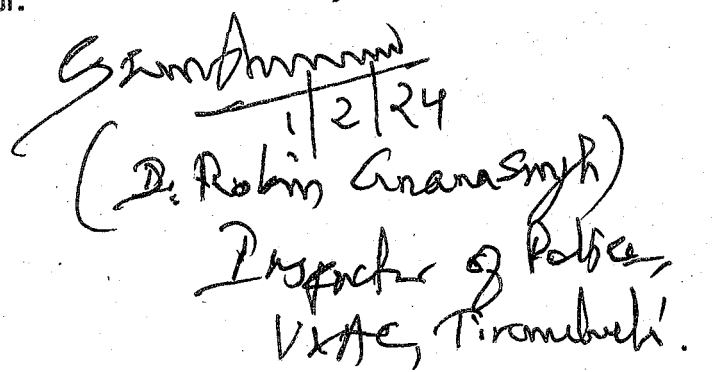 1/2/24
(D. Robin Gnanasingh)
Inspector of Police,
V&AC, Tirunelveli.